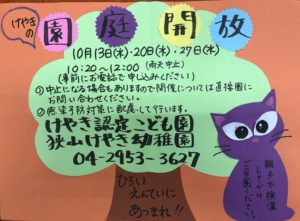 けやきの
園庭開放
10月13日(水)・20日(水)・27日(水)
10:20~12:00(雨天中止)
(事前にお電話で申し込みください)
◎中止になる場合もありますので開催については直接園に
お問い合わせください。
◎感染予防対策に配慮して行います。
けやき認定こども園
狭山けやき幼稚園
04-2953-3627
ひろい
えんていに
あつまれ!!
親子で検温
してから
ご来園ください